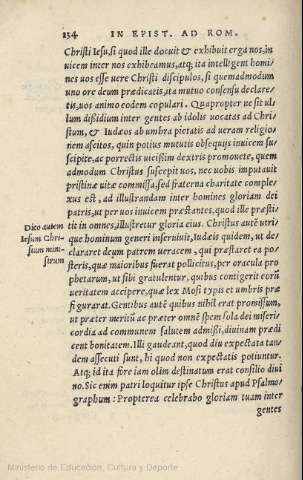 234 IN EPIST. AD ROM.
Christi Iesu, si quod ille docuit & exhibuit erga nos, in
uicem inter nos exhibeamus, atq; ita intelligent homi
nes uos esse uere Christi discipulos, si quemadmodum
uno ore deum prædicatis, ita mutuo consensu declare-
tis, uos animo eodem copulari. Quapropter ne sit ul-
lum dissidium inter gentes ab idolis uocatas ad Chri-
stum, & Iudæos ab umbra pietatis ad ueram religio-
nem ascitos, quin potius mutuis obsequijs inuicem su-
scipite, ac porrectis uicissim dextris promouete, quem
admodum Christus suscepit uos, nec uobis imputauit
pristinæ uitæ commissa, sed fraterna charitate comple-
xus est, ad illustrandam inter homines gloriam dei
patris, ut per uos inuicem præstantes, quod ille præsti-
tit in omnes, illustretur gloria eius. Christus autē utri-
que hominum generi inseruiuit, Iudæis quidem, ut de-
clararet deum patrem ueracem, qui præstaret ea po-
steris, quæ maioribus fuerat pollicitus, per oracula pro
phetarum, ut sibi gratulentur, quibus contigerit eorū
ueritatem accipere, quæ lex Mosi typis et umbris præ
figurarat. Gentibus autē quibus nihil erat promissum,
ut præter meritū ac præter omnē spem sola dei miseri-
cordia ad communem salutem admissi, diuinam prædi
cent bonitatem. Illi gaudeant, quod diu expectata tan-
dem assecuti sunt, hi quod non expectatis potiuntur.
Atq; id ita fore iam olim destinatum erat consilio diui
no. Sic enim patri loquitur ipse Christus apud Psalmo-
graphum: Propterea celebrabo gloriam tuam inter
gentes
Dico autem
Iesum Chri-
stum mini-
strum
Ministerio de Educación, Cultura y Deporte